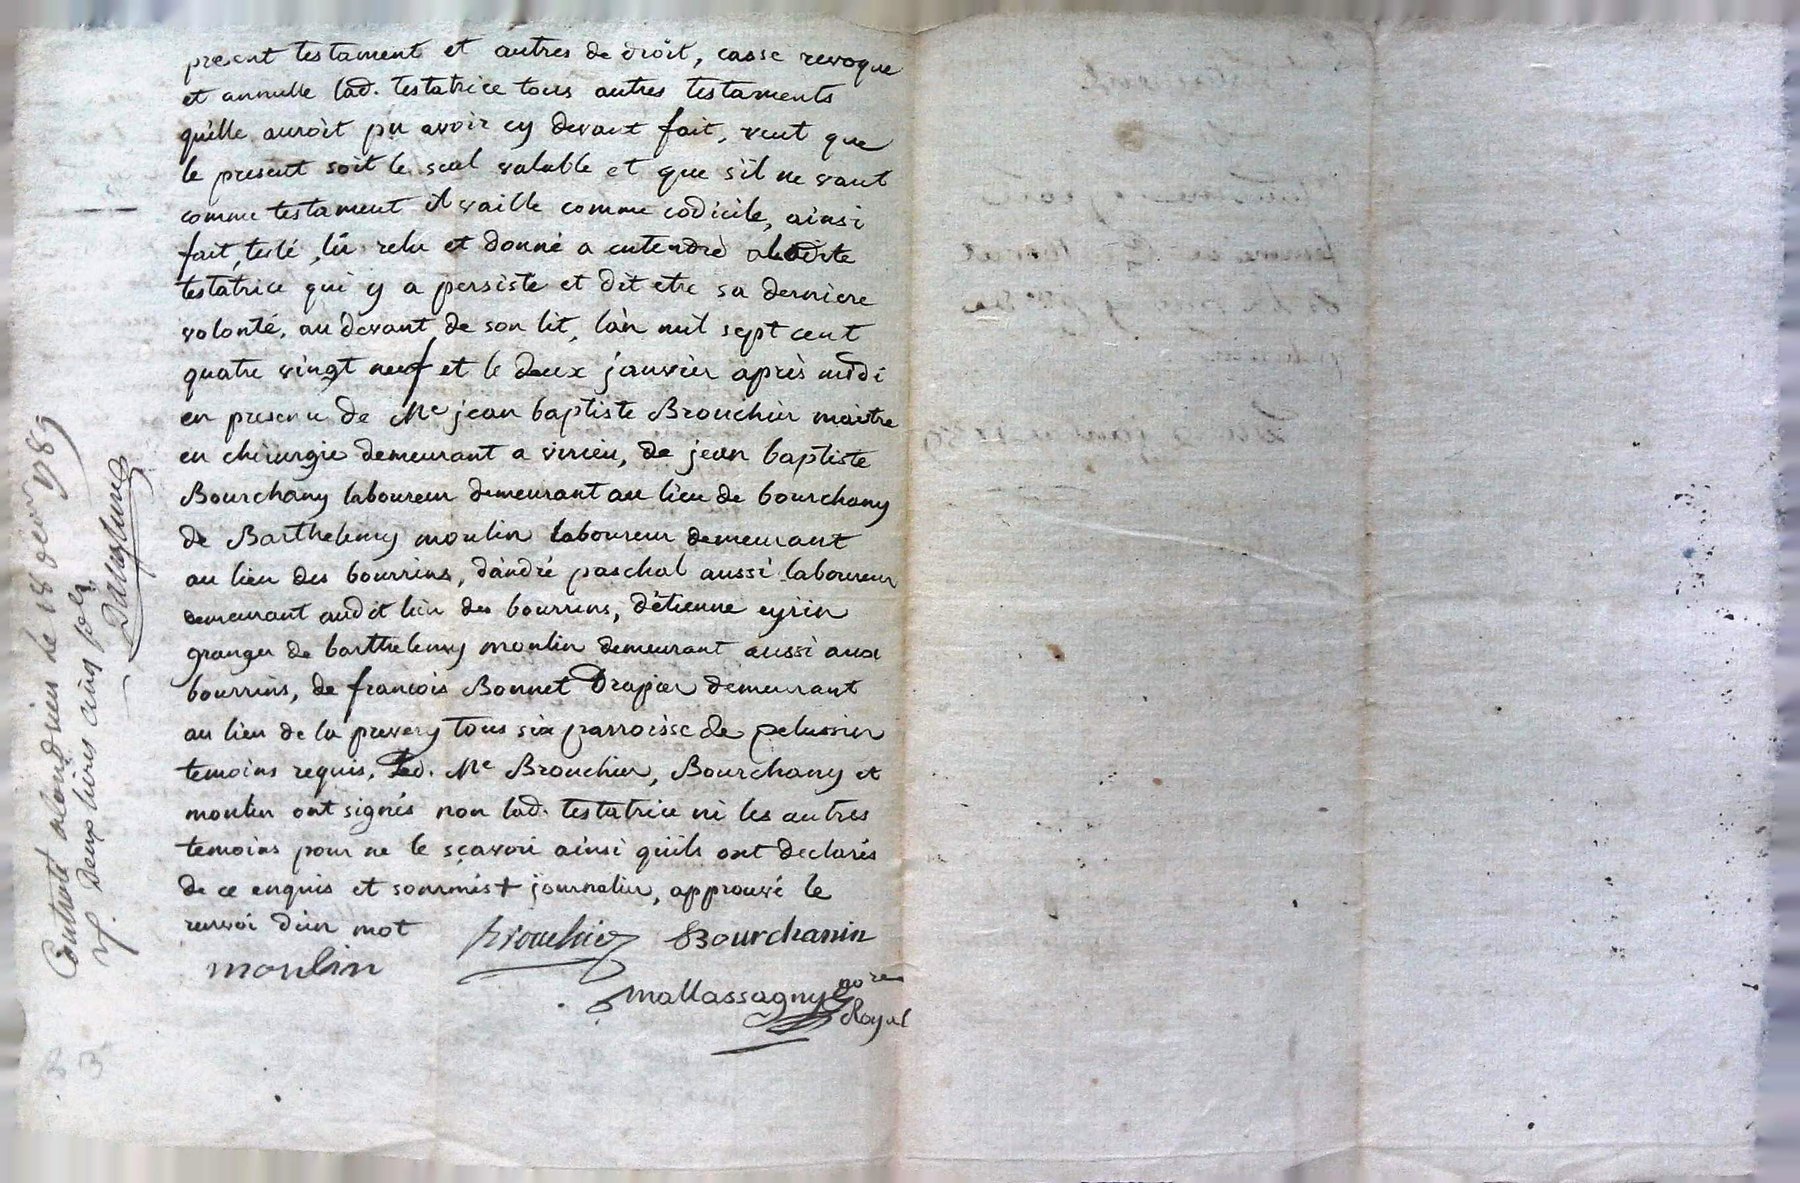 present testament et autres de droit, casse revoque
et annulle lad. testatrice tous autres testaments
quelle auroit pu avoir cy devant fait, veut que
le present soit le seul valable et que s'il ne vaut
comme testament il vaille comme codicile, ainsi
fait, testé, lû relu et donné a entendre a ladite
testatrice qui y a persiste et dit etre sa derniere
volonté, au devant de son lit, l'an mil sept cent
quatre vingt neuf et le deux janvier après midi
en presence de Me jean baptiste Brouchier maitre
en chirurgie demeurant a virieu, de jean baptiste
Bourchany laboureur demeurant au lieu de bourchany
de Barthelemy moulin laboureur demeurant
au lieu des bourrins, d'andré paschal aussi laboureur
demeurant audit lieu des bourrins, d'étienne eyrin
granger de barthelemy moulin demeurant aussi aux
bourrins, de francois Bonnet Drapier demeurant
au lieu de la prevery tous six parroisse de pelussin
temoins requis, Led. Me Brouchier, Bourchany et
moulin ont signés non lad. testatrice ni les autres
temoins pour ne le sçavoir ainsi quils ont declarés
de ce enquis et sommés + journalier, approuvé le
renvoi d'un mot
Brouchier Bourchanin
moulin
Mallassagny nore
Royal
Controlé a Condrieu le 18 1789
Deux livres cinq sols